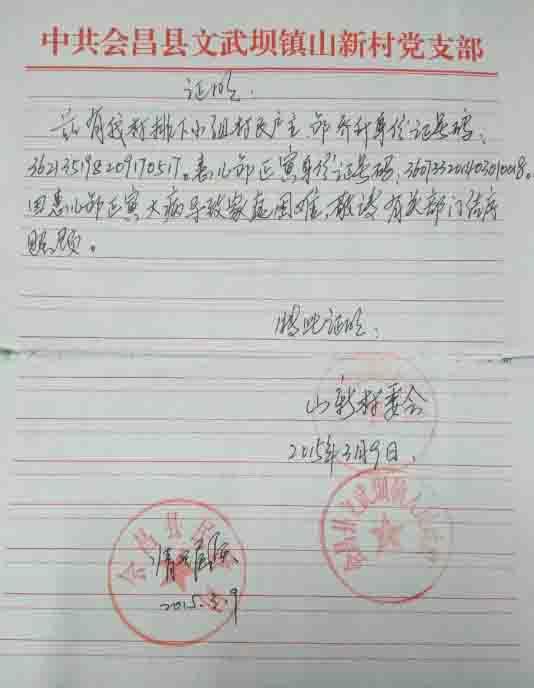 中共会昌县文武坝镇山新村党支部
证明
兹有我村排下小组村民户主 身份证号码:
362135198209170517。患儿 正寅身份证号码:360733201403010018。
因患儿 正寅大病导致家庭困难,敬请有关部门给予
照顾。
特此证明
山新村委会
2015年3月9日
会昌县文武坝镇人民政府
会昌县民
情况属实
2015.3.9